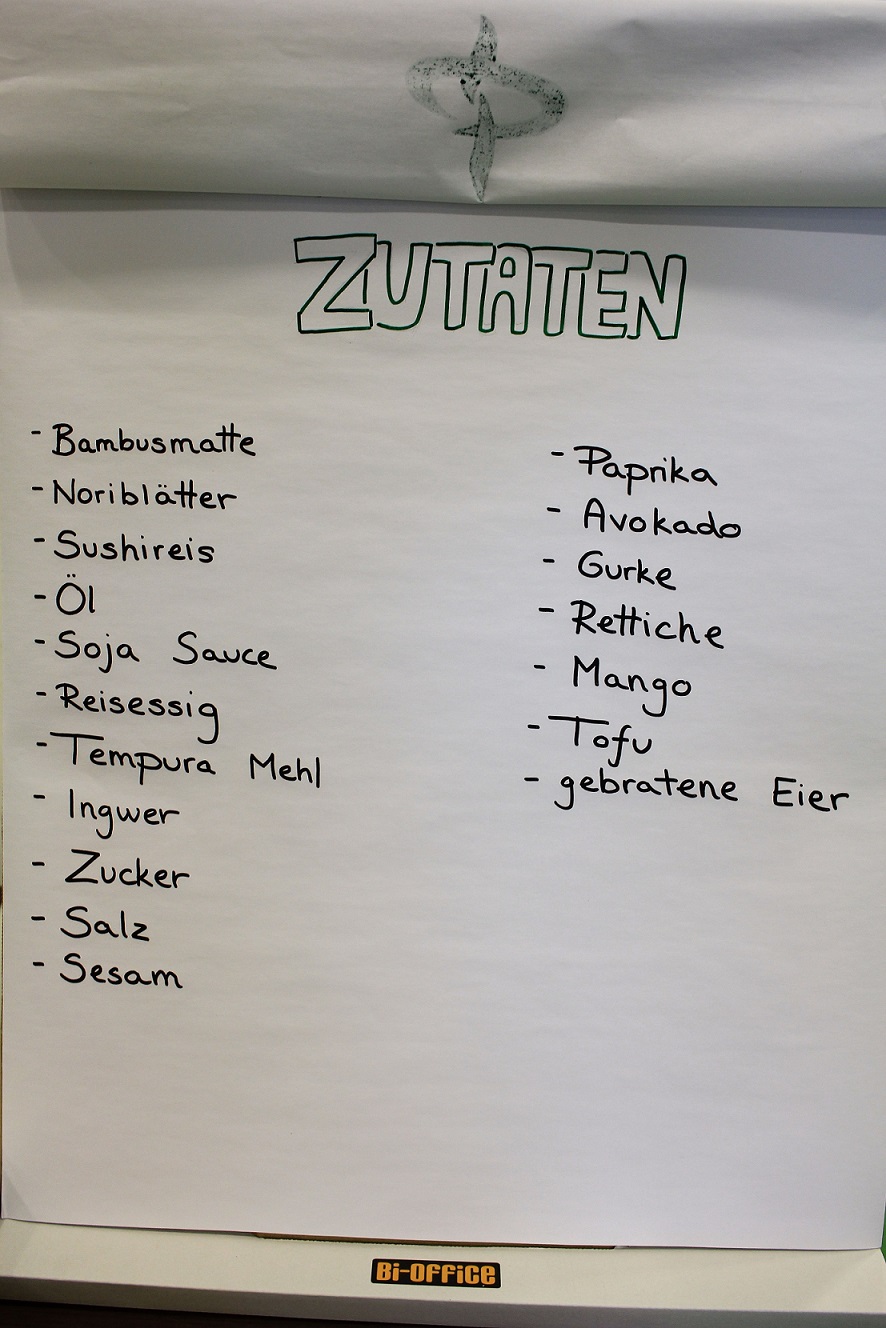 ZUTATEN
- Bambusmatte
- Noriblätter
- Sushireis
- Öl
- Soja Sauce
- Reisessig
- Tempura Mehl
- Ingwer
- Zucker
- Salz
- Sesam
- Paprika
- Avokado
- Gurke
- Rettiche
- Mango
- Tofu
- gebratene Eier
Bi-OFFiCE